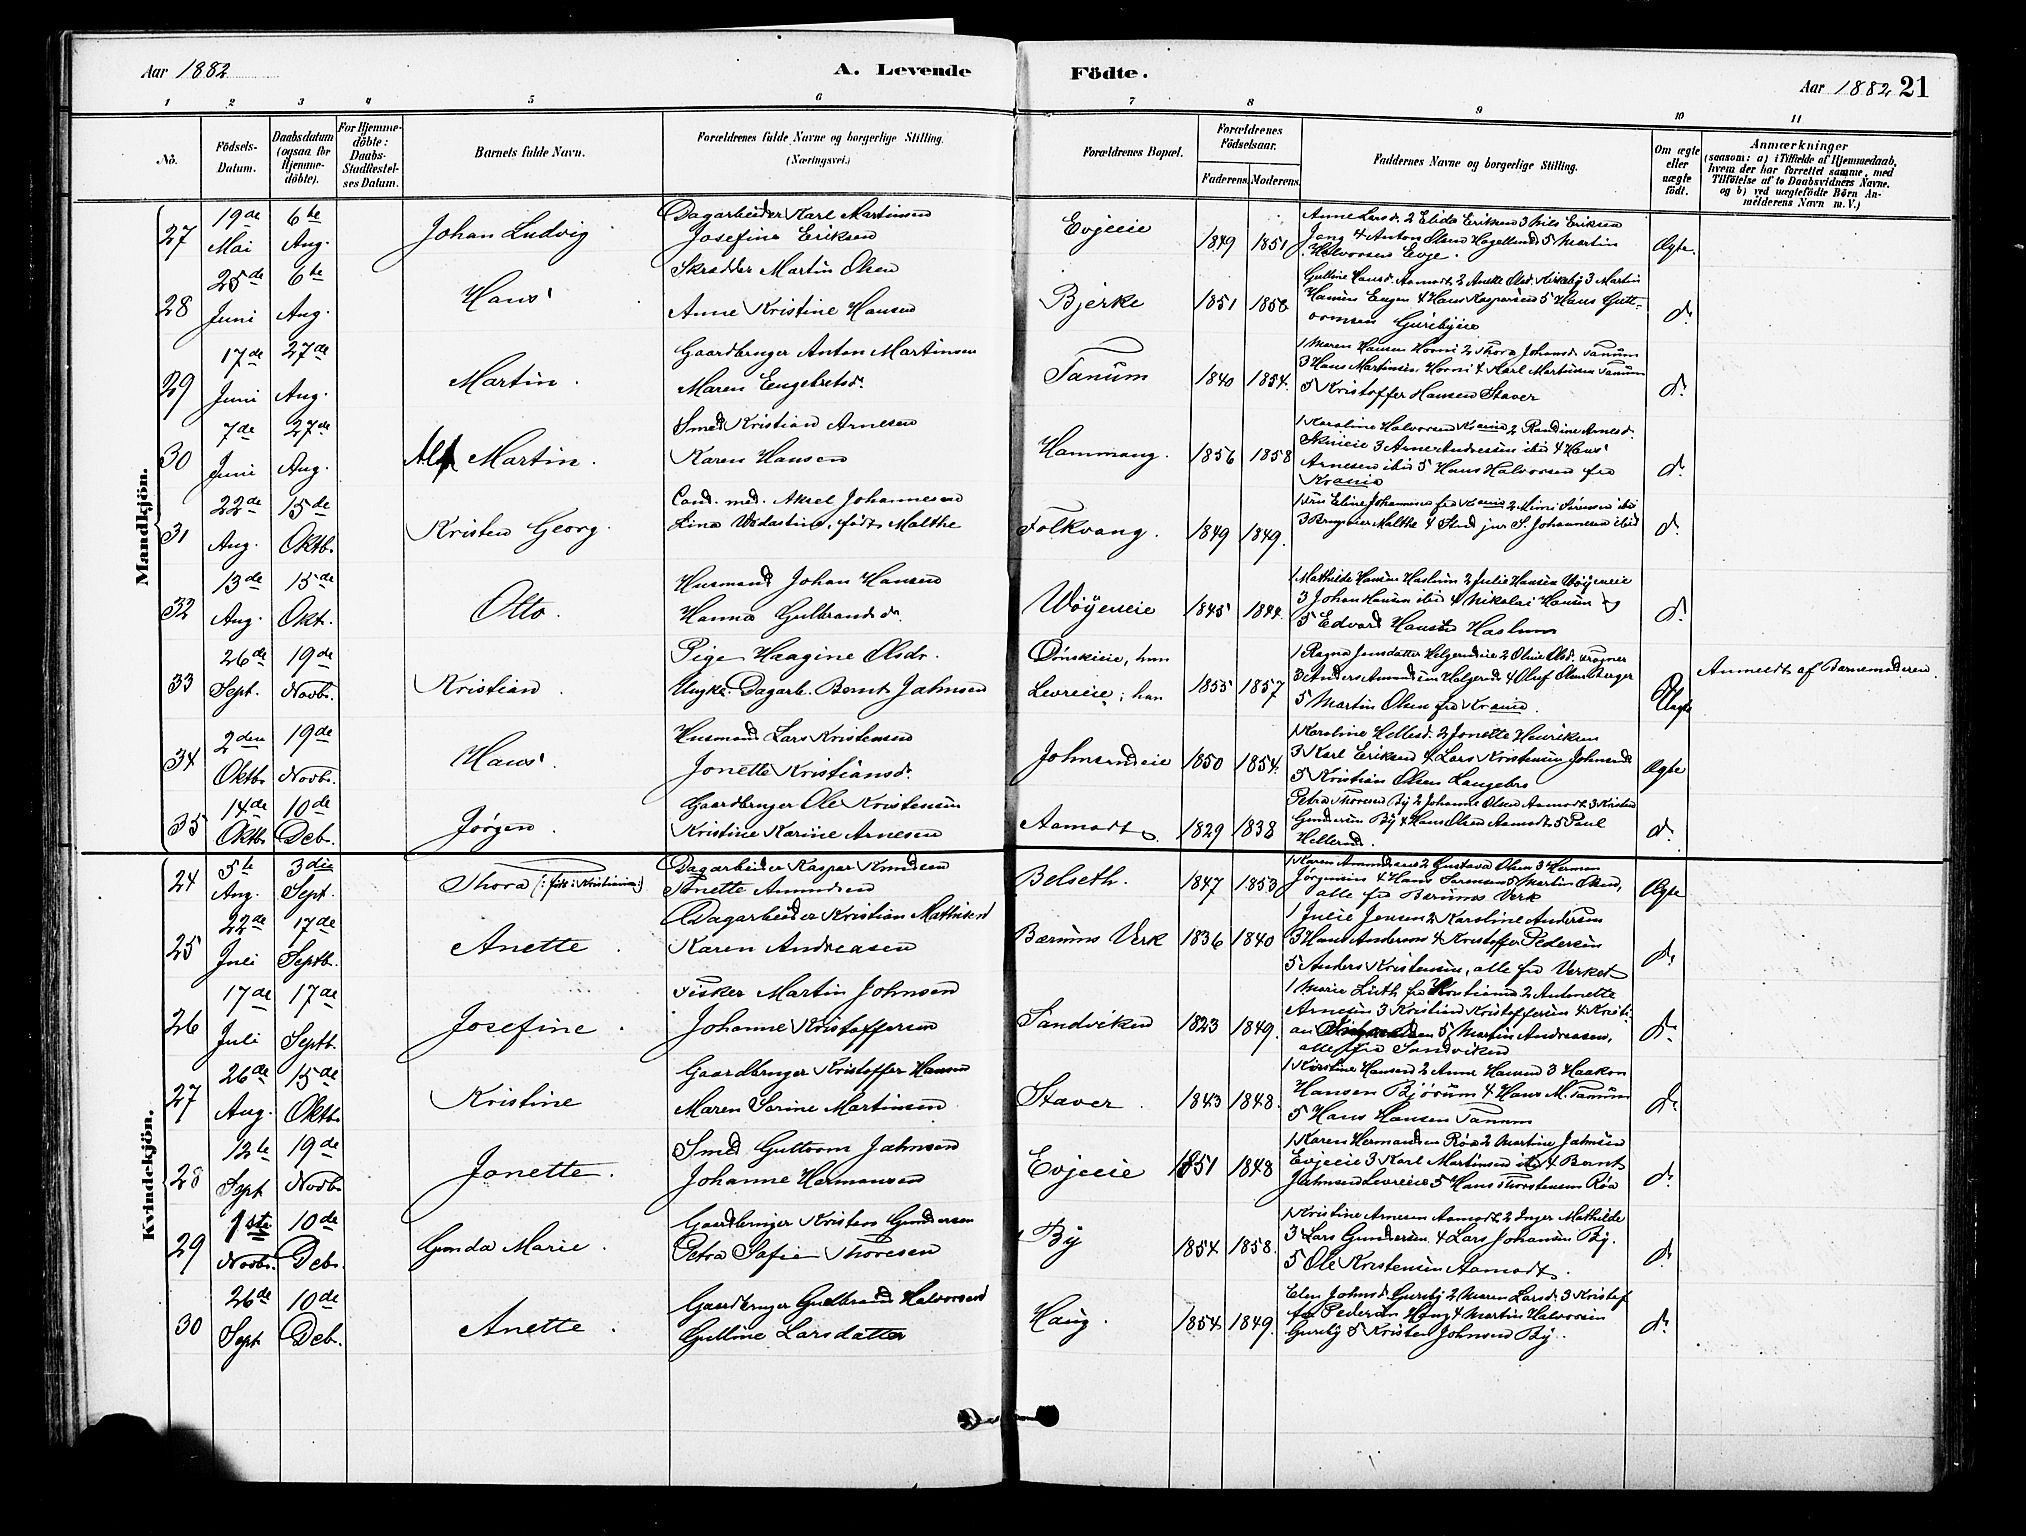 Aar 1882
A. Levende
Födte.
Aar 1882 21
1 2 3 4 5 6 7 8 9 10 11
No.
Födsels-
Datum.
Daabsdatum
(ogsaa for
Hjemme-
döbte).
For Hjemme-
döbte:
Daabs-
Stadfæstel-
ses Datum.
Barnets fulde Navn.
Forældrenes fulde Navne og borgerlige Stilling.
(Næringsvei.)
Forældrenes Bopæl.
Forældrenes
Födselsaar.
Faderens. Moderens.
Faddernes Navne og borgerlige Stilling.
Om ægte
eller
uægte
födt.
Anmærkninger
(saasom: a) i Tilfælde af Hjemmedaab,
hvem der har forrettet samme, med
Tilföielse af to Daabsvidners Navne,
og b) ved uægtefödte Börn An-
melderens Navn m. V.)
Mandkjön.
27 19de Mai 6te Aug. Johan Ludvig
Dagarbeider Karl Martinsen
Josefine Eriksen
Evjeeie 1849 1851
Anne Larsd. 2 Elida Eriksen 3 Nils Eriksen
Jong 4 Anton Olsen Hagelund 5 Martin
Halvorsen Evje.
Ægte.
28 25de Juni 6te Aug. Hans
Skrædder Martin Olsen
Anne Kristine Hansen
Bjerke 1851 1856
Gulline Hansd. Aamodt 2 Anke Olsd. Kirkeby 3 Martin
Hansen Engen 4 Hans Kaspersen 5 Hans Gutt-
ormsen Gurebyeie
do
29 17de Juni 27de Aug. Martin.
Gaardbruger Anton Martinsen
Maren Engebretsd.
Tanum 1840 1854.
1 Maren Hansen Horni 2 Thora Johansd. Tanum
3 Hans Martinsen Horni 4 Karl Martinsen Tanum
5 Kristoffer Hansen Staver
do
30 7de Juni 27de Aug. Alf Martin.
Smed Kristian Arnesen
Karen Hansen
Hammang. 1856 1858
1 Karoline Halvorsen Krania 2 Randine Arnesd.
Skuieie 3 Arne Andressen ibid 4 Hans
Arnesen ibid 5 Hans Halvorsen fra
Krania
do
31 22de Aug. 15de Oktb. Kristen Georg.
Cand. med. Aksel Johannesen
Lina Vedastine, født Malthe
Folkvang. 1849 1849.
1 Fru Eline Johannesen fra Krania 2 Mimi Sørensen ibid
3 Brugeier Malthe 4 Stud jur S. Johannesen ibid
do
32 13de Aug. 15de Okt. Otto.
Husmand Johan Hansen
Hanna Gulbrandsdr.
Wøyeneie 1845 1844.
1 Mathilde Hansen Haslum 2 Julie Hansen Wøyeneie
3 Johan Hansen ibid 4 Nikolai Hansen og
5 Edvard Hansen Haslum
do
33 26de Sept. 19de Novbr. Kristian.
Pige Haagine Olsdr.
Ungk. Dagarb. Bernt Jahnsen
Dønskieie, hun
Levreeie; han
1855 1857
1 Ragna Jensdatter Helgerudeie 2 Oline Olsd. Frogner
3 Anders Amundsen Helgerud 4 Oluf Olsen Berger
5 Martin Olsen fra Krania.
Uægte
Anmeldt af Barnemoderen.
34 2den Oktbr. 19de Novbr. Hans
Husmand Lars Kristensen
Jonette Kristiansd.
Johnsrudeie 1850 1854.
1 Karoline Hellesd. 2 Jonette Henriksen
3 Karl Eriksen 4 Lars Kristensen Johnsrud
5 Kristian Olsen Langebro
Ægte
35 14de Oktbr. 10de Deb. Jørgen.
Gaardbruger Ole Kristensen
Kristine Karine Arnesen
Aamodt. 1829 1838
Petra Thoresen By 2 Johanne Olsen Aamodt 3 Kristen
Gundersen By 4 Hans Olsen Aamodt 5 Paul
Hellerud.
do
Kvindekjön.
24 5te Aug. 3die Sept. Thora (: født i Kristiania :)
Dagarbeider Kaspar Knudsen
Anette Amundsen
Belseth. 1847 1853
1 Karen Amundsens 2 Gustava Olsen 3 Herman
Jørgensen 4 Hans Sørensen 5 Martin Olsen,
alle fra Bærums Verk
Ægte
25 22de Juli 17de Septb. Anette.
Dagarbeider Kristian Mathisen
Karen Andreasen
Bærums Verk 1836 1840
1 Julie Jensen 2 Karoline Andersen
3 Hans Andersen 4 Kristoffer Pedersen
5 Anders Kristensen, alle fra Verket
do
26 17de Juli 17de Septb. Josefine.
Fisker Martin Johnsen
Johanne Kristoffersen
Sandviken 1823 1849.
1 Marie Lüth fra Kristiania 2 Antonette
Arnesen 3 Kristian Kristoffersen 4 Kristi-
an 5 Martin Andreasen,
alle fra Sandviken
do
27 26de Aug. 15de Oktb. Kristine
Gaardbruger Kristoffer Hansen
Maren Sorine Martinsen
Staver. 1843 1848.
1 Kirstine Hansen 2 Anne Hansen 3 Haakon
Hansen Bjørum 4 Hans M. Tanum
5 Hans Hansen Tanum
do
28 12te Sept 19de Novb. Jonette.
Smed Guttorm Jahnsen
Johanne Hermansen
Evjeeie 1851 1848
1 Karen Hermansen Røa 2 Martine Jahnsen
Evjeeie 3 Karl Martinsen ibid 4 Bernt
Jahnsen Levreeie 5 Hans Thorstensen Røa
do
29 1ste Novbr. 10de Deb. Gunda Marie.
Gaardbruger Kristen Gundersen
Petra Sofie Thoresen
By 1854 1858.
1 Kristine Arnesen Aamodt 2 Inger Mathilde
3 Lars Gundersen 4 Lars Johansen By.
5 Ole Kristensen Aamodt.
do
30 26de Sept 10de Deb. Anette.
Gaardbruger Gudbrand Halvorsen
Gulline Larsdatter
Haug. 1854 1849.
Elen Johnsd. Gureby 2 Maren Larsd. 3 Kristof
fer Pedersen Haug 4 Martin Halvorsen
Gureby 5 Kristen Johnsen By.
do